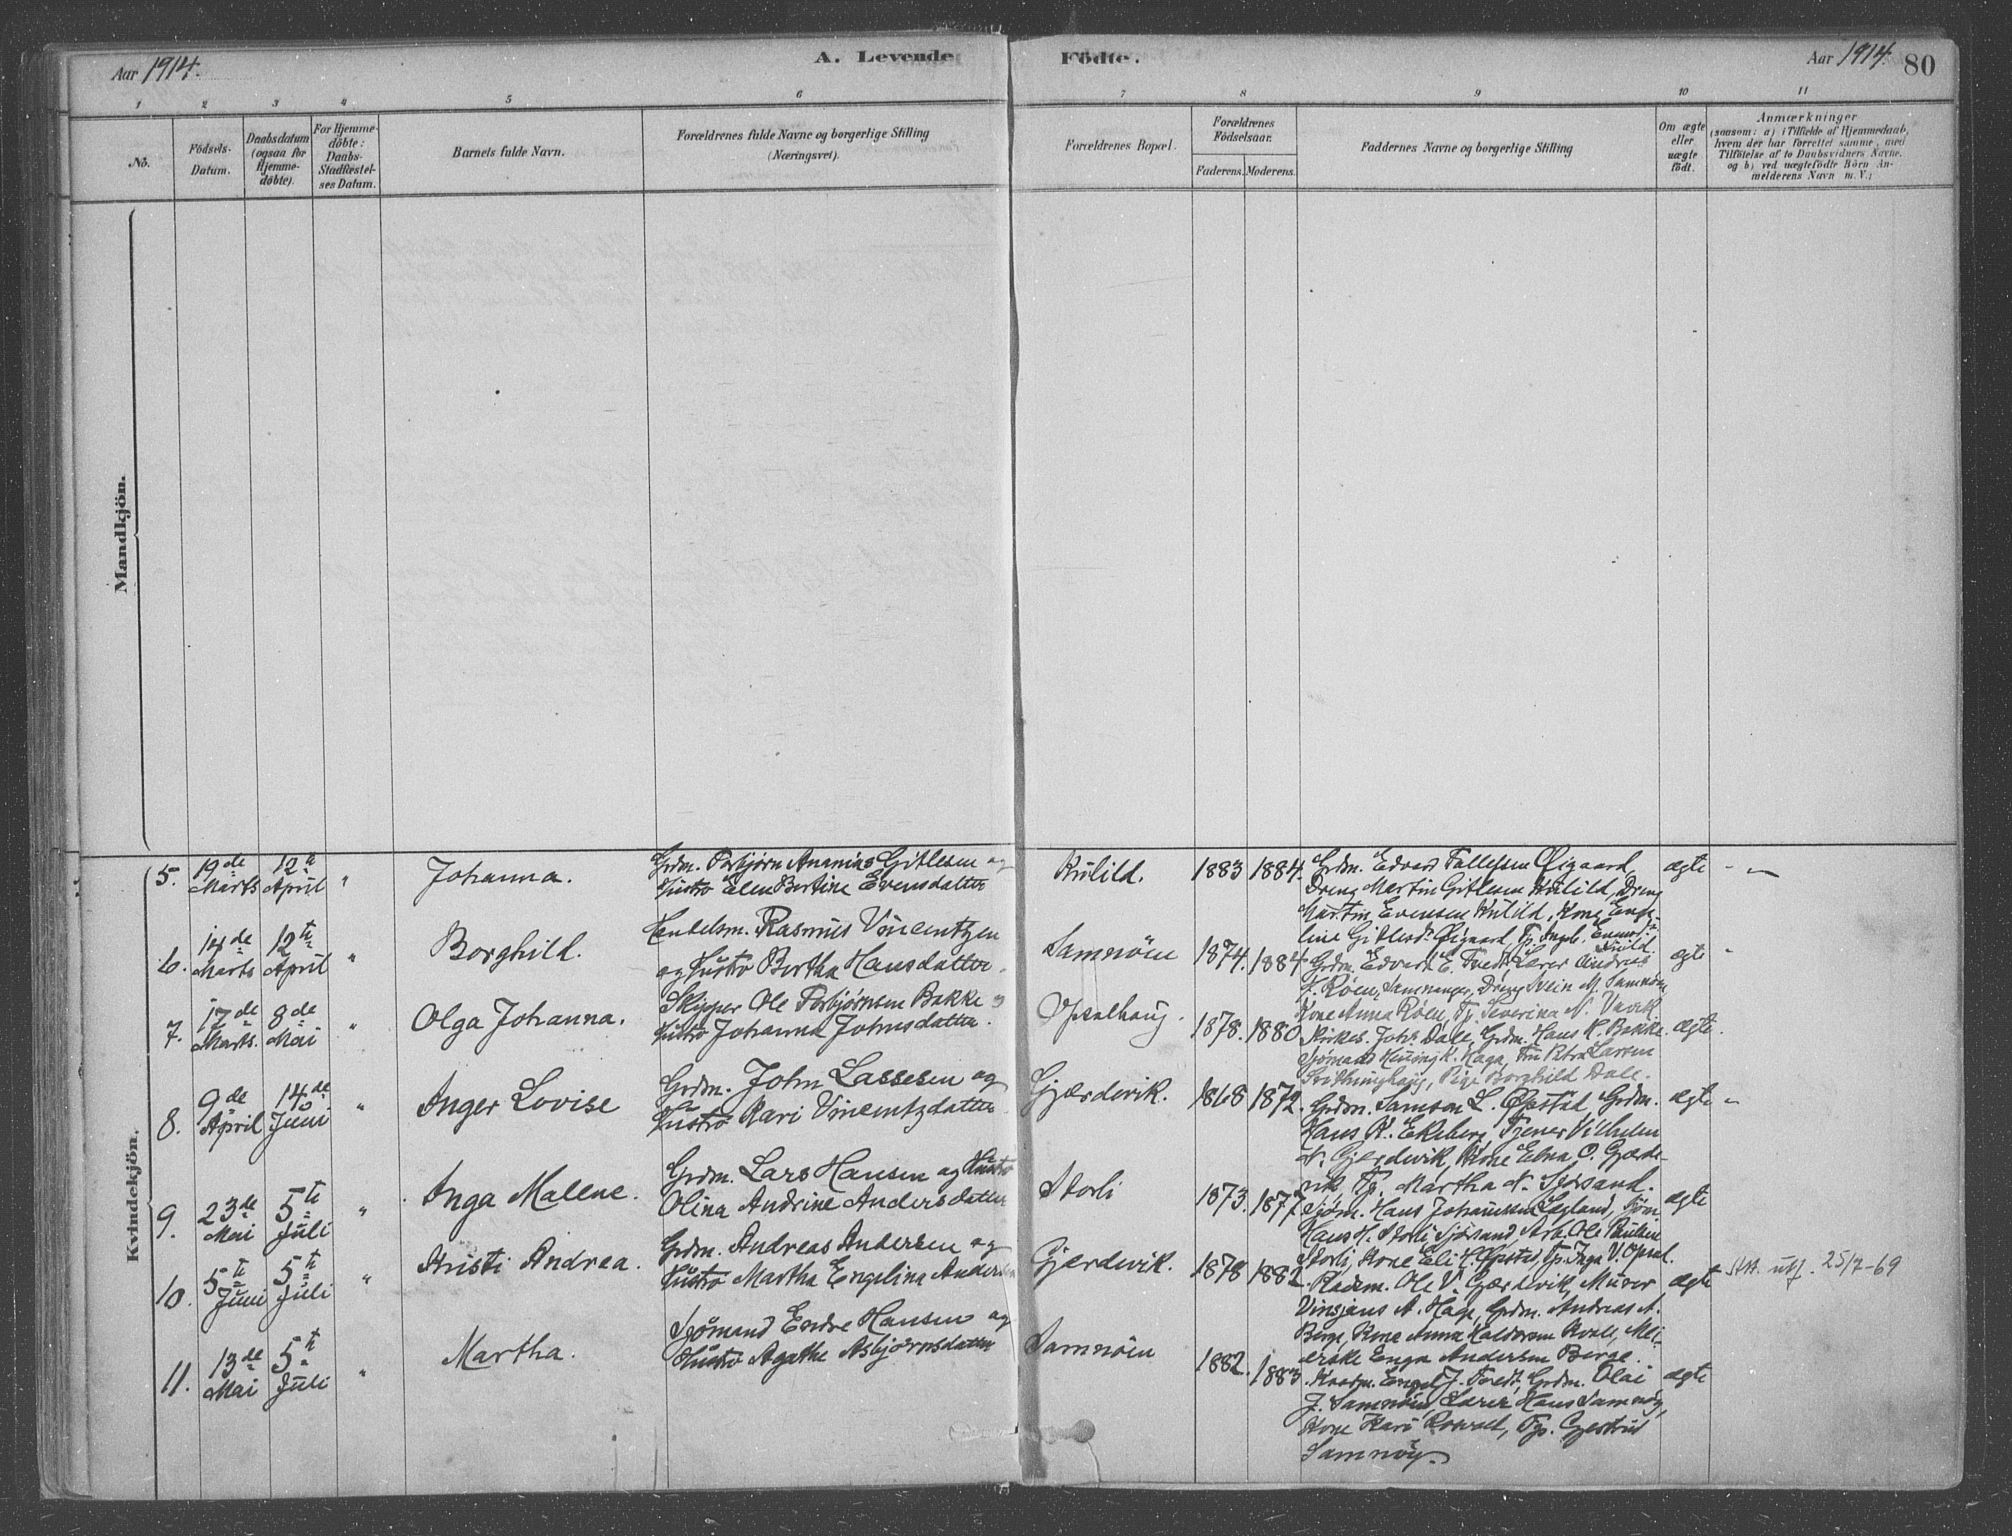 Aar 1914.
A. Levende
Födte.
Aar 1914.
80
1 2 3 4 5 6 7 8 9 10 11
No.
Födsels-
Datum.
Daabsdatum
(ogsaa for
Hjemme-
döbte).
For Hjemme-
döbte:
Daabs-
Stadfæstel-
ses Datum.
Barnets fulde Navn.
Forældrenes fulde Navne og borgerlige Stilling
(Næringsvei).
Forældrenes Bopæl.
Forældrenes
Födselsaar.
Faderens. Moderens.
Faddernes Navne og borgerlige Stilling
Om ægte
eller
uægte
födt.
Anmærkninger
(saasom: a) i Tilfælde af Hjemmedaab,
hvem der har forrettet samme, med
Tilföielse af to Daabsvidners Navne.
og b) ved uægtefödte Börn An-
melderens Navn m. V.;
Mandkjön.
Kvindekjön.
5. 19de Marts 12te April " Johanna.
Grdm. Torbjørn Ananias Gitlesen og
Hustro Elen Bertine Evensdatter
Kulild. 1883 1884.
Grdm. Edvard Tollefsen Øigaard,
Dreng Martin Gitlesen Kulild, Dreng
Martin Evensen Kulild, Kone Enge-
line Gitlesd. Øigaard,
Kulild
ægte
6. 14de Marts 12te April " Borghild.
Handelsm. Rasmus Vincentzen
og Hustro Bertha Hansdatter
Samnöen 1874. 1884
Grdm. Edvard E. Tvedt, Lærer Andreas
J. Røen, Samnanger, Dreng Svein M. Samnøen
Kone Anna Røen, Tj. Severina N. Vavik
ægte
7. 17de Marts. 8de Mai " Olga Johanna.
Skipper Ole Torbjørnsen Bakke og
Hustro Johanna Johnsdatter.
Opsalhaug. 1878. 1880
Kirkes. Johs Dale, Grdm. Hans K. Bakke.
Sjömand Henning K. Haga, Fru Petra Larsen
Pige Borghild Dale.
ægte.
8. 9de April 14de Juni " Anger Lovise
Grdm. John Lassesen og
Hustro Kari Vincentzdatter
Gjerdevik. 1868 1872.
Grdm. Samson L. Opstad, Grdm.
Hans K. Ekeberg, Tjener Vilhelm
N. Gjerdevik, Kone Elna O. Gjerde-
vik Tj. Martha N. Sjösand.
ægte
9. 23de Mai 5te Juli " Inga Malene.
Grdm. Lars Hansen og Hustro
Olina Andrine Andersdatter
Storli 1873. 1877
Sjöm. Hans Johannesen Løgland, Sjöm
Hans H. Storli Sjösand, Arb. Ole Paulsen
Storli, Kone Eli H. Opstad, Tj. Inga V. Opsal.
ægte
10. 5te Juni 5te Juli " Kristi Andrea.
Grdm. Andreas Andersen og
Hustro Martha Engelina Anders
Gjerdevik. 1878 1882.
Ole V. Gjerdevik, Murer
Vinsjans A. Haga, Grdm. Andreas A.
Berge, Kone Anna Haldorsen Kvale, Mei-
erske Enga Andersen Berge
ægte
Att. utf. 25/7-69
11. 13de Mai 5te Juli " Martha.
Sjömand Endre Hansen og
Hustro Agathe Asbjørnsdatter
Samnöen 1882. 1883
Engel J. Tvedt, Grdm. Olai
J. Samnøen, Lærer Hans Samnøy,
Kone Kari Tj. Gjertrud
Samnöy.
ægte